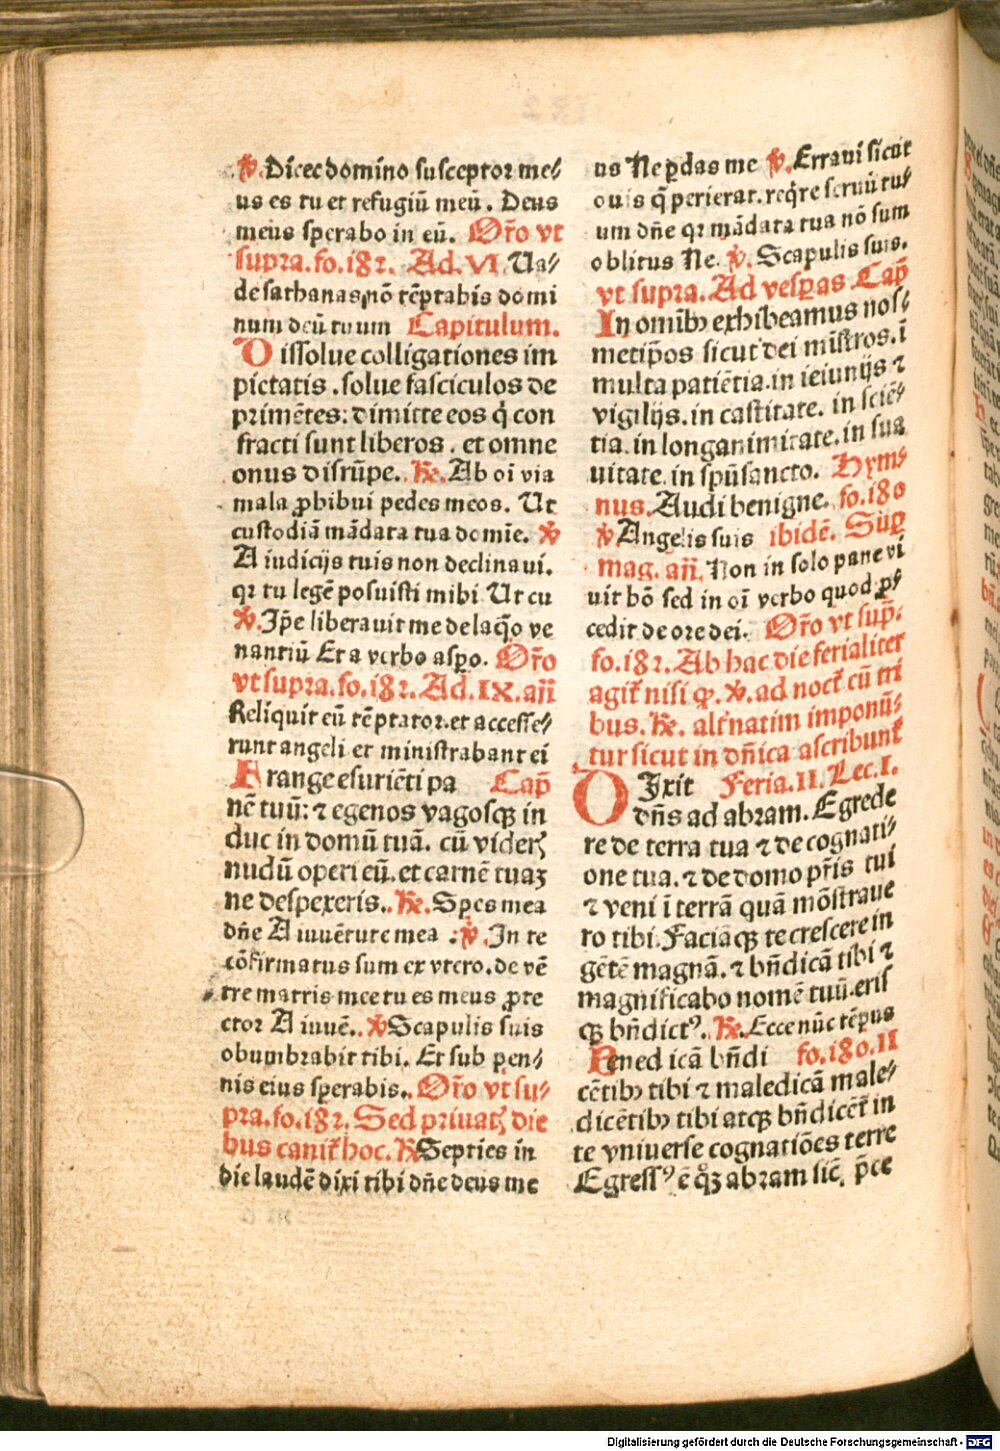 ℣. Dicet domino susceptor me⸗
us es tu et refugiū meū. Deus
meus sperabo in eū. Or̄o vt
supra. fo. i8ꝛ. Ad. VI. Ua⸗
de sathanas, nō tēptabis domi
num deū tuum Capitulum.
Dissolue colligationes im
pietatis. solue fasciculos de
primētes: dimitte eos q̇ con
fracti sunt liberos. et omne
onus disrūpe. ℟. Ab oī via
mala ꝓhibui pedes meos. Ut
custodiā mādata tua domīe. ℣
A iudicijs tuis non declinaui.
qꝛ tu legē posuisti mihi Ut cu
℣. Ip̄e liberauit me de laq̄o ve
nantiū Et a verbo asꝑo. Or̄o
vt supra. fo. i8ꝛ. Ad. IX. an̄
Reliquit eū tēptator. et accesse⸗
runt angeli et ministrabant ei
Frange esuriēti pa Cap̄
nē tuū: ⁊ egenos vagosqꝫ in
duc in domū tuā. cū videꝝ
nudū operi eū. et carnē tuaꝫ
ne despexeris. ℟. Spes mea
dn̄e A iuuētute mea. ℣. In te
cōfirmatus sum ex vtero. de vē
tre matris mee tu es meus ꝓte
ctor A iuuē. ℣ Scapulis suis
obumbrabit tibi. Et sub pen⸗
nis eius sperabis. Or̄o vt su⸗
pra. fo. i8ꝛ. Sed priuatꝭ die
bus canit̄ hoc. ℟ Septies in
die laudē dixi tibi dn̄e deus me
us Ne ꝑdas me ℣. Erraui sicut
ouis q̄ perierat. reqͥre seruū tu⸗
um dn̄e qꝛ mādata tua nō sum
oblitus Ne. ℣. Scapulis suis.
vt supra. Ad vesꝑas Cap̄
In omībꝫ exhibeamus nos⸗
metip̄os sicut dei mīstros. ī
multa patiētia. in ieiunijs ⁊
vigilijs. in castitate. in sciē⸗
tia. in longanimitate. in sua
uitate. in sp̄usancto. Hym⸗
nus. Audi benigne. fo. i80
℣ Angelis suis ibidē. Suꝑ
mag. an̄. Non in solo pane vi
uit hō sed in oī verbo quod ꝓ⸗
cedit de ore dei. Or̄o vt sup̄.
fo. i8ꝛ. Ab hac die ferialiter
agit̄ nisi qꝫ. ℣. ad noct̄ cū tri
bus. ℟. alt̄natim imponū⸗
tur sicut in dn̄ica ascribunt̄
DIxit Feria. II. Lec. I.
dn̄s ad abꝛam. Egrede
re de terra tua ⁊ de cognati⸗
one tua. ⁊ de domo pr̄is tui
⁊ veni ī terrā quā mōstraue
ro tibi. Faciāqꝫ te crescere in
gētē magnā. ⁊ bn̄dicā tibi ⁊
magnificabo nomē tuū. eris
qꝫ bn̄dictꝰ. ℟. Ecce nūc tēpus
Bened icā bn̄di fo. i80. II
cētibꝫ tibi ⁊ maledicā male⸗
dicētibꝫ tibi atqꝫ bn̄dicēt̄ in
te vniuerse cognatiōes terre
Egressꝰ ē qͦꝫ abꝛam sic̄. p̄ce
Digitalisierung gefördert durch die Deutsche Forschungsgemeinschaft - DFG